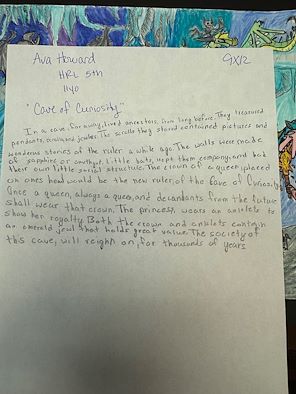 Ava Howard
9x12
HRL 5th
1140
"Cave of Curiosity"
In a cave, far away, lived ancestors, from long before. They treasured
pendants, and jewles. The scrolls they stored contained pictures and
wonderus stories of the ruler a while ago. The walls were made
of sapphire or amethyst. Little bats, kept them company, and had
their own little social structure. The crown of a queen, placed
on ones head would be the new ruler, of the Cave of Curiosity
Once a queen, always a queen, and decandants from the future
shall wear that crown. The princess, wears an anklete to
show her royalty. Both the crown and anklets contain
an emerald jewl that holds great value. The society of
this cave, will reighn on, for thousands of years